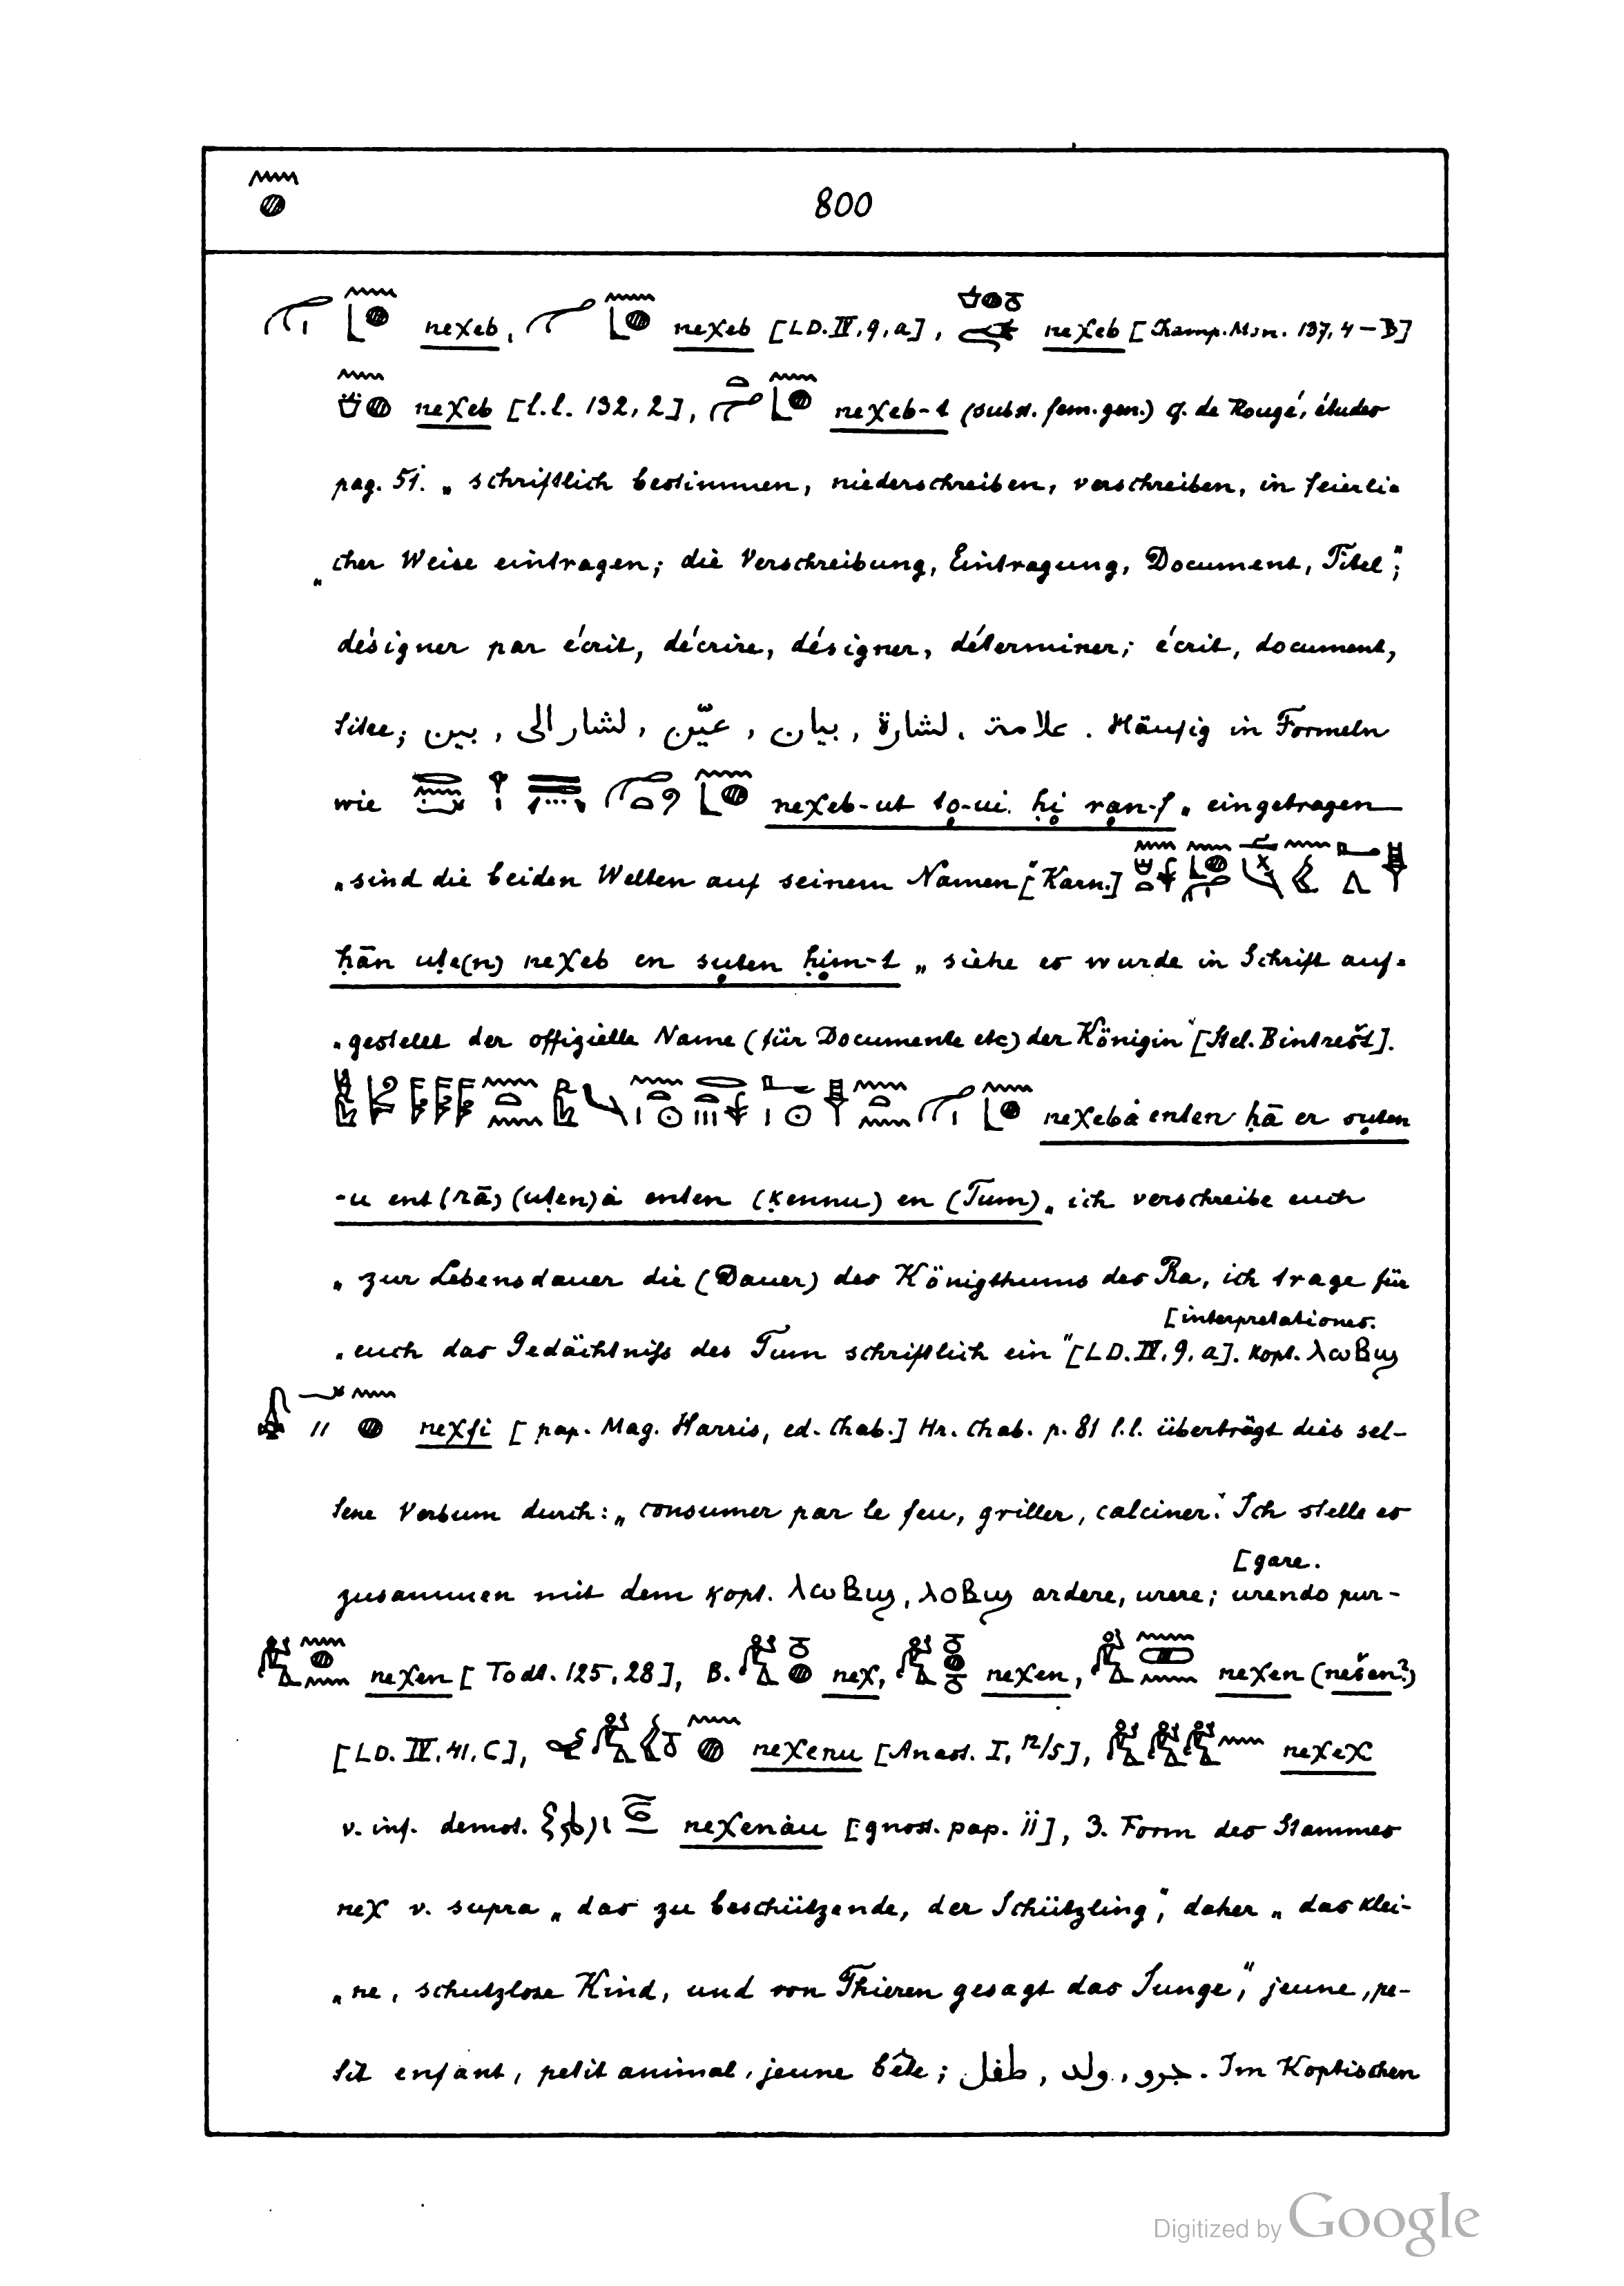 800
neχeb, neχeb [LD. IV, 9, a], neχeb [Champ. Mon. 137, 4 — B]
neχeb [l. l. 132, 2], neχeb-t (subst. fem. gen.) cf. de Rougé, études
pag. 51. „schriftlich bestimmen, niederschreiben, verschreiben, in feierli-
„cher Weise eintragen; die Verschreibung, Eintragung, Document, Titel";
désigner par écrit, décrire, désigner, déterminer; écrit, document,
titre; بين , اشار الى , عيّن , بيان , اشارة , علامة . Häufig in Formeln
wie neχeb-ut to-ui ḥi ran-f „eingetragen
„sind die beiden Welten auf seinem Namen" [Karn.]
ḥān uṭe(n) neχeb en suten ḥim-t „siehe es wurde in Schrift auf-
„gestellt der offizielle Name (für Documente etc) der Königin" [Stel. Bintrešt].
neχebȧ enten ḥā er suten
-u ent (rā) (uṭen)ȧ enten (ḳennu) en (Tum) „ich verschreibe euch
„zur Lebensdauer die (Dauer) des Königthums des Ra, ich trage für
[interpretationes.
„euch das Gedächtniss des Tum schriftlich ein" [LD. IV, 9, a]. kopt. λωβϣ
neχfi [pap. Mag. Harris, ed. Chab.] Hr. Chab. p. 81 l.l. überträgt dies sel-
tene Verbum durch: „consumer par le feu, griller, calciner." Ich stelle es
[gare.
zusammen mit dem kopt. λωβϣ, λοβϣ ardere, urere; urendo pur-
neχen [Todt. 125, 28], B. neχ, neχen, neχen (nešen?)
[LD. IV. 41, C], neχennu [Anast. I, 12/5], neχeχ
v. inf. demot. neχenȧu [gnost. pap. 11], 3. Form des Stammes
neχ v. supra „das zu beschützende, der Schützling", daher „das klei-
„ne, schutzlose Kind, und von Thieren gesagt das Junge", jeune, pe-
tit enfant, petit animal, jeune bête; طفل , ولد , جرو . Im Koptischen
Digitized by Google